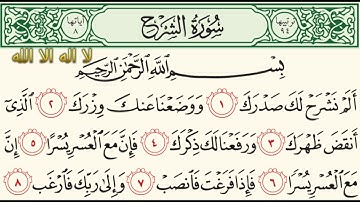 ترتيبها ٩٤ سُورَةُ الشَّرْحِ آياتها ٨
لا اله الا الله
بِسْمِ اللَّهِ الرَّحْمَٰنِ الرَّحِيمِ
أَلَمْ نَشْرَحْ لَكَ صَدْرَكَ ١ وَوَضَعْنَا عَنكَ وِزْرَكَ ٢ الَّذِي
أَنقَضَ ظَهْرَكَ ٣ وَرَفَعْنَا لَكَ ذِكْرَكَ ٤ فَإِنَّ مَعَ الْعُسْرِ يُسْرًا ٥ إِنَّ
مَعَ الْعُسْرِ يُسْرًا ٦ فَإِذَا فَرَغْتَ فَانصَبْ ٧ وَإِلَىٰ رَبِّكَ فَارْغَب ٨